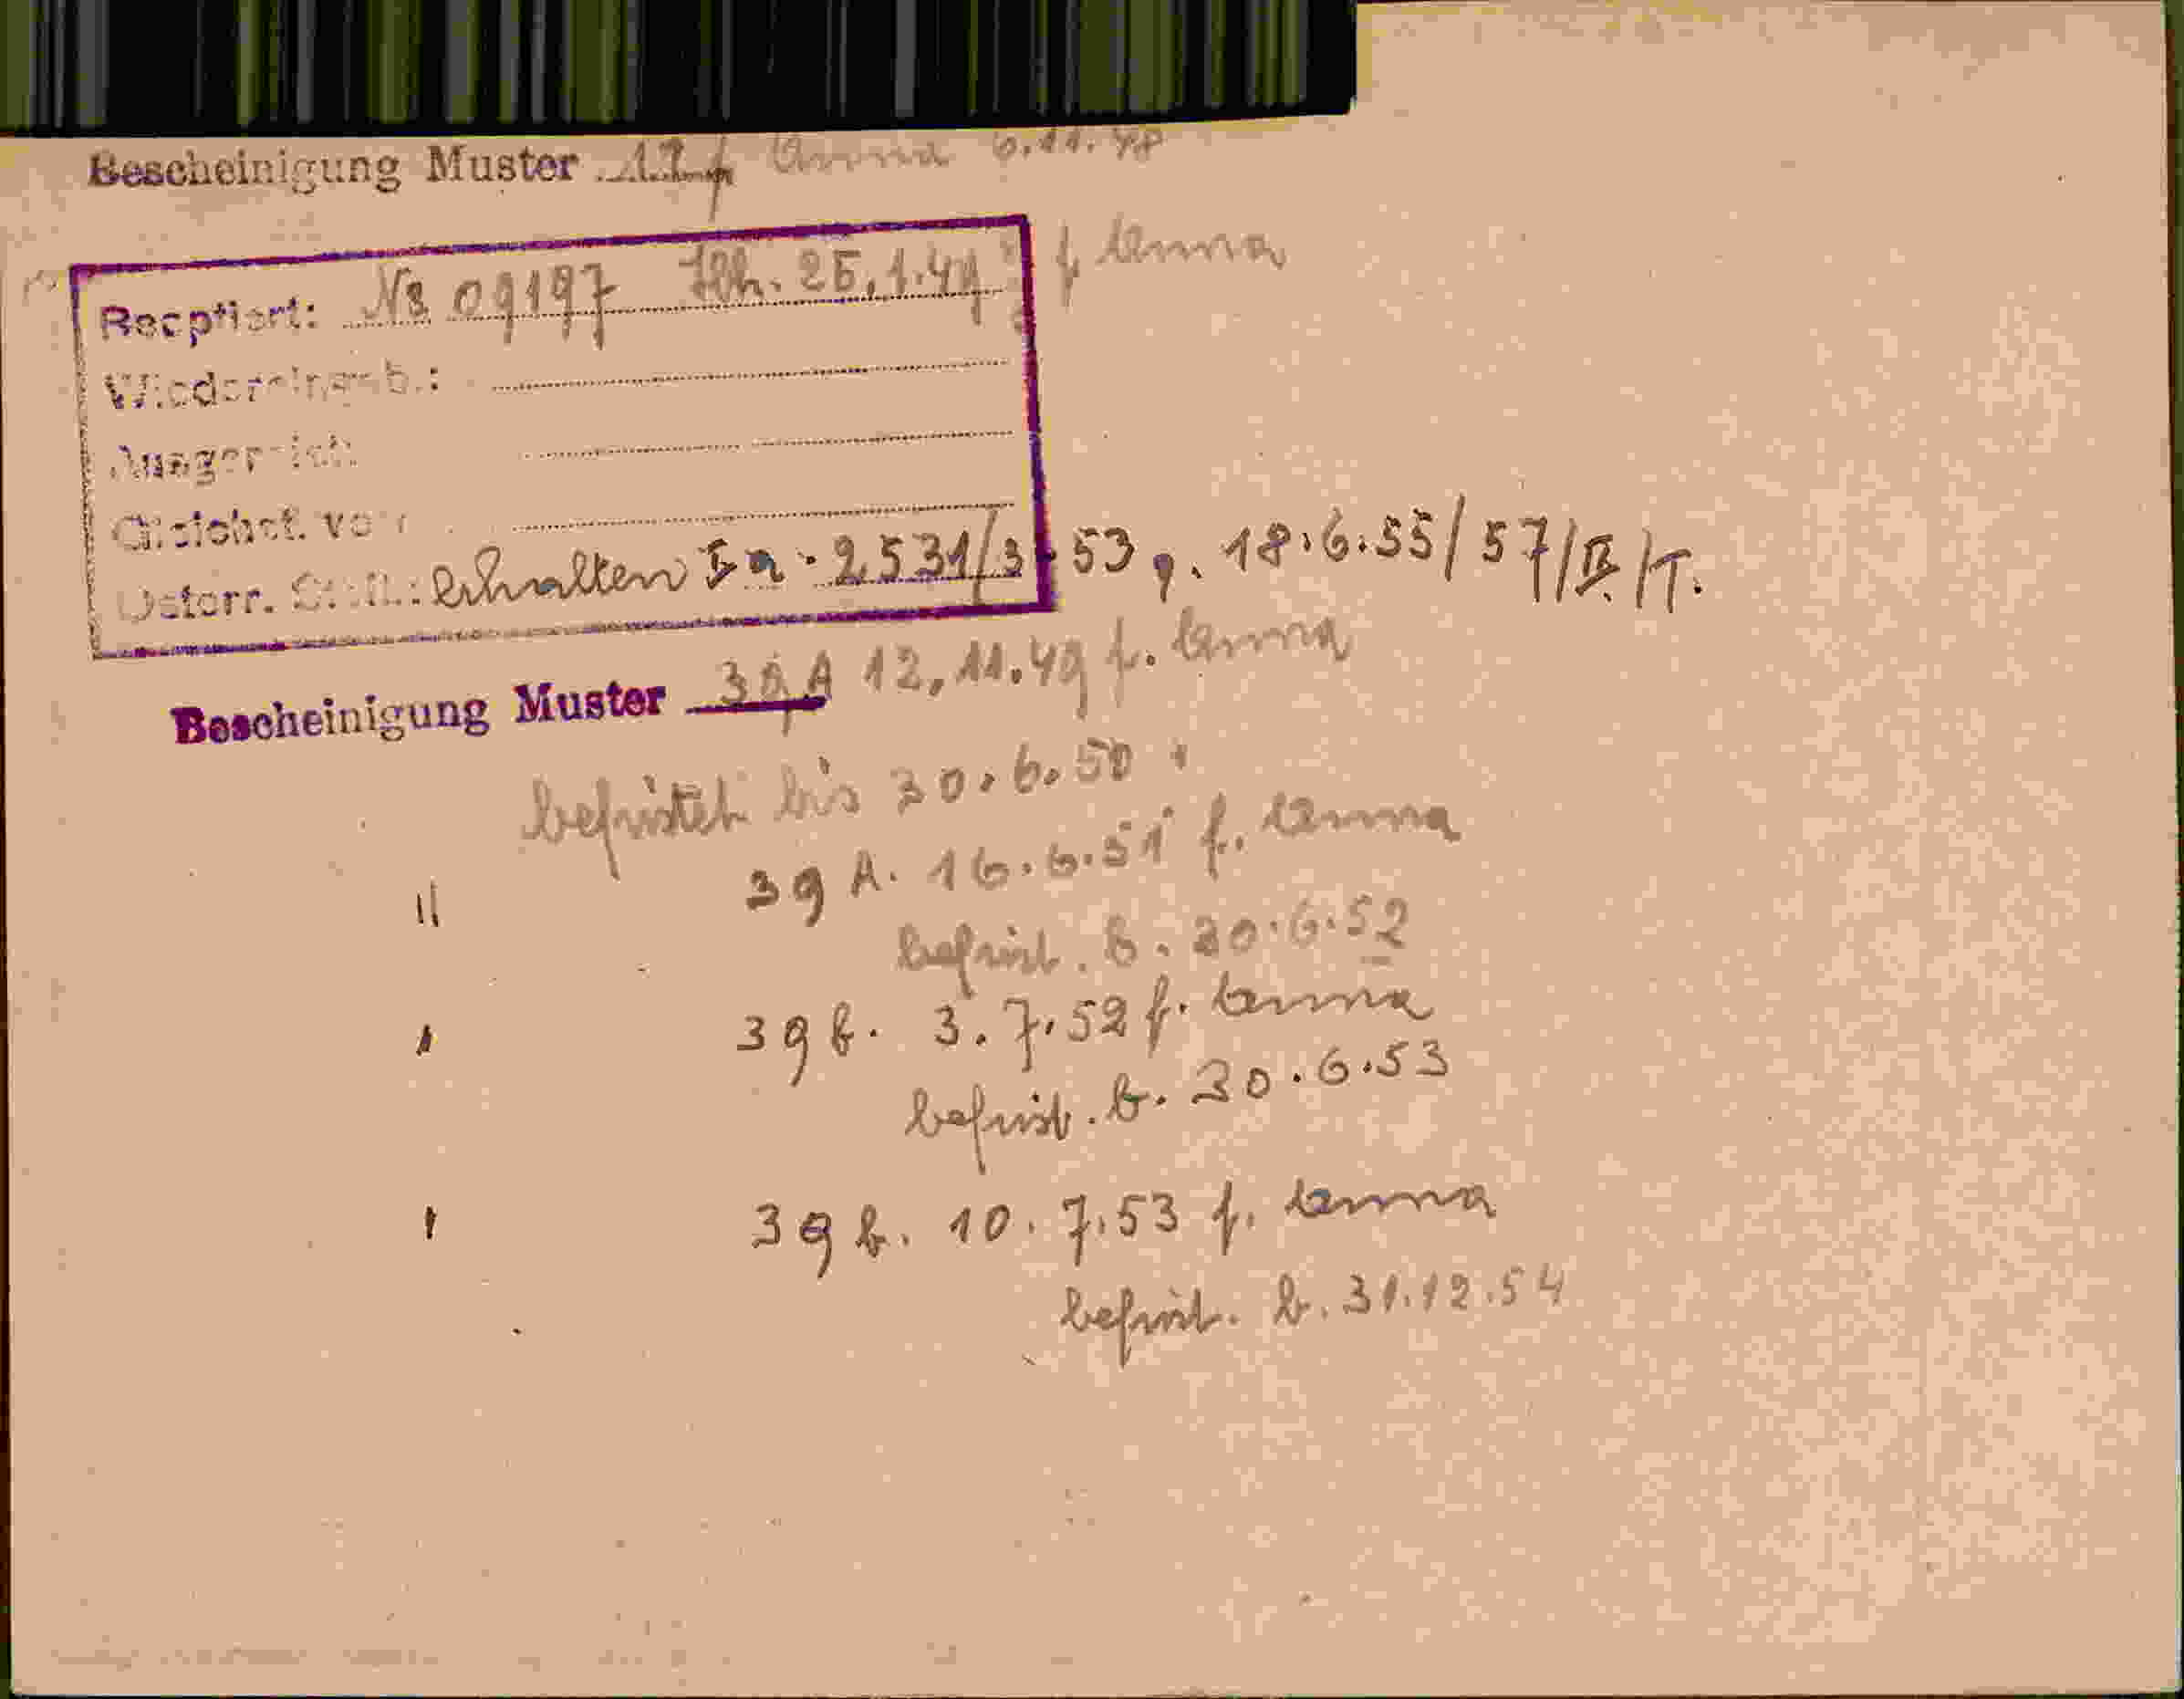 Bescheinigung Muster 12 f Anna 6.11.48
Recptiert: No 09197 25.1.49 f Anna
Wiedereingeb.:
Ausgereich.
Gleichst. von
Österr. Stell.: Erhalten I a. 2531/3-53, 18.6.55/57/II/T.
Bescheinigung Muster 39 A 12.11.49 f. Anna
befristet bis 30.6.50
" 39 A. 16.6.51 f. Anna
befrist. b. 30.6.52
" 39 b. 3.7.52 f. Anna
befrist. b. 30.6.53
" 39 b. 10.7.53 f. Anna
befrist. b. 31.12.54